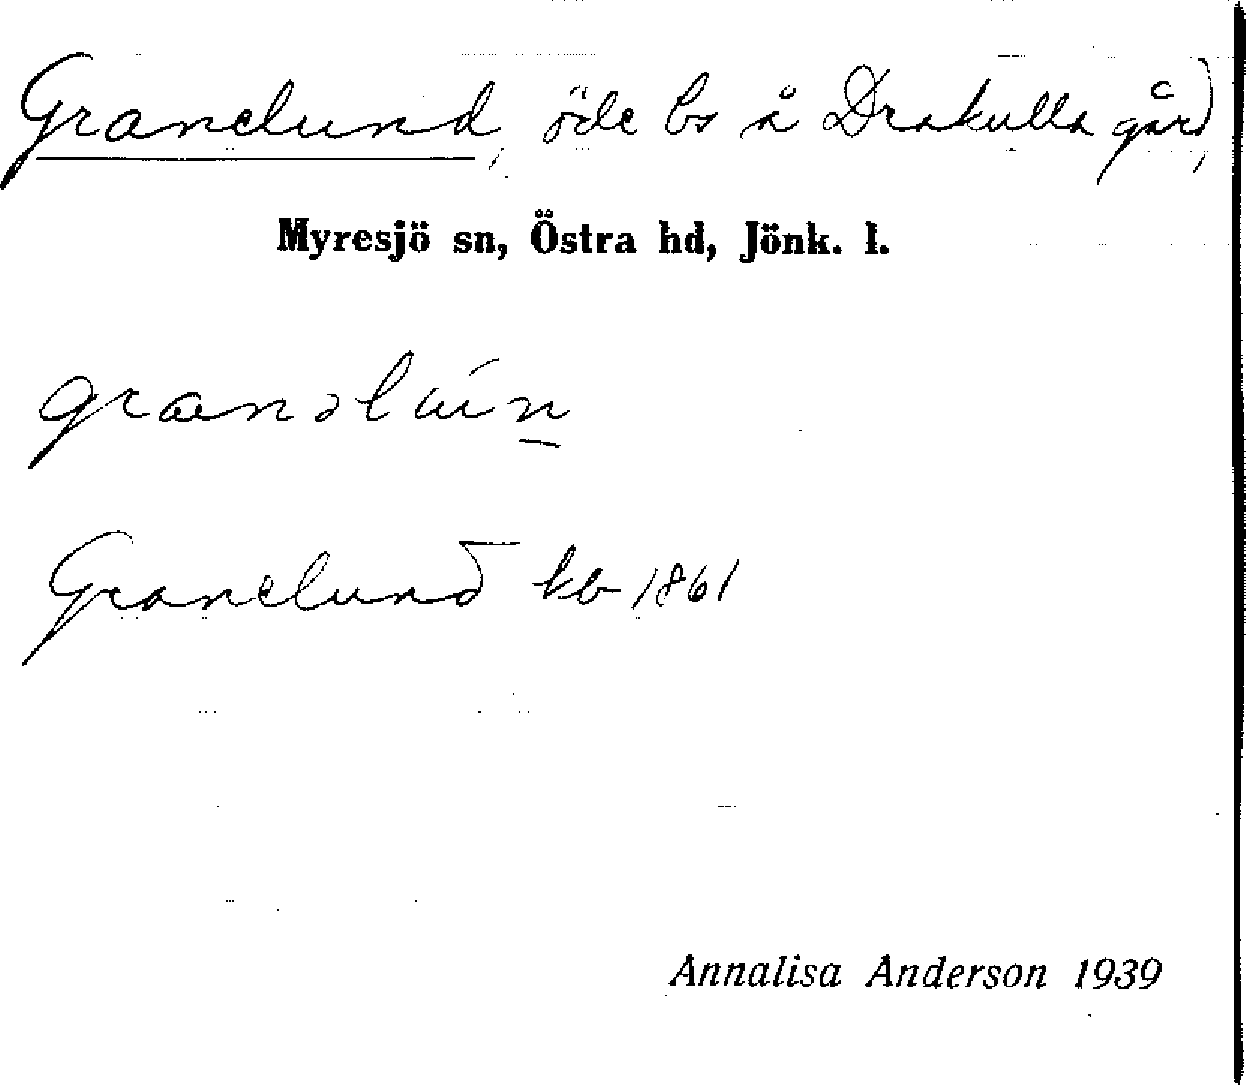 Granelund, öde bs å Drakulla gård,
Myresjö sn, Östra hd, Jönk. l.
Granelund kb 1861
Annalisa Anderson 1939